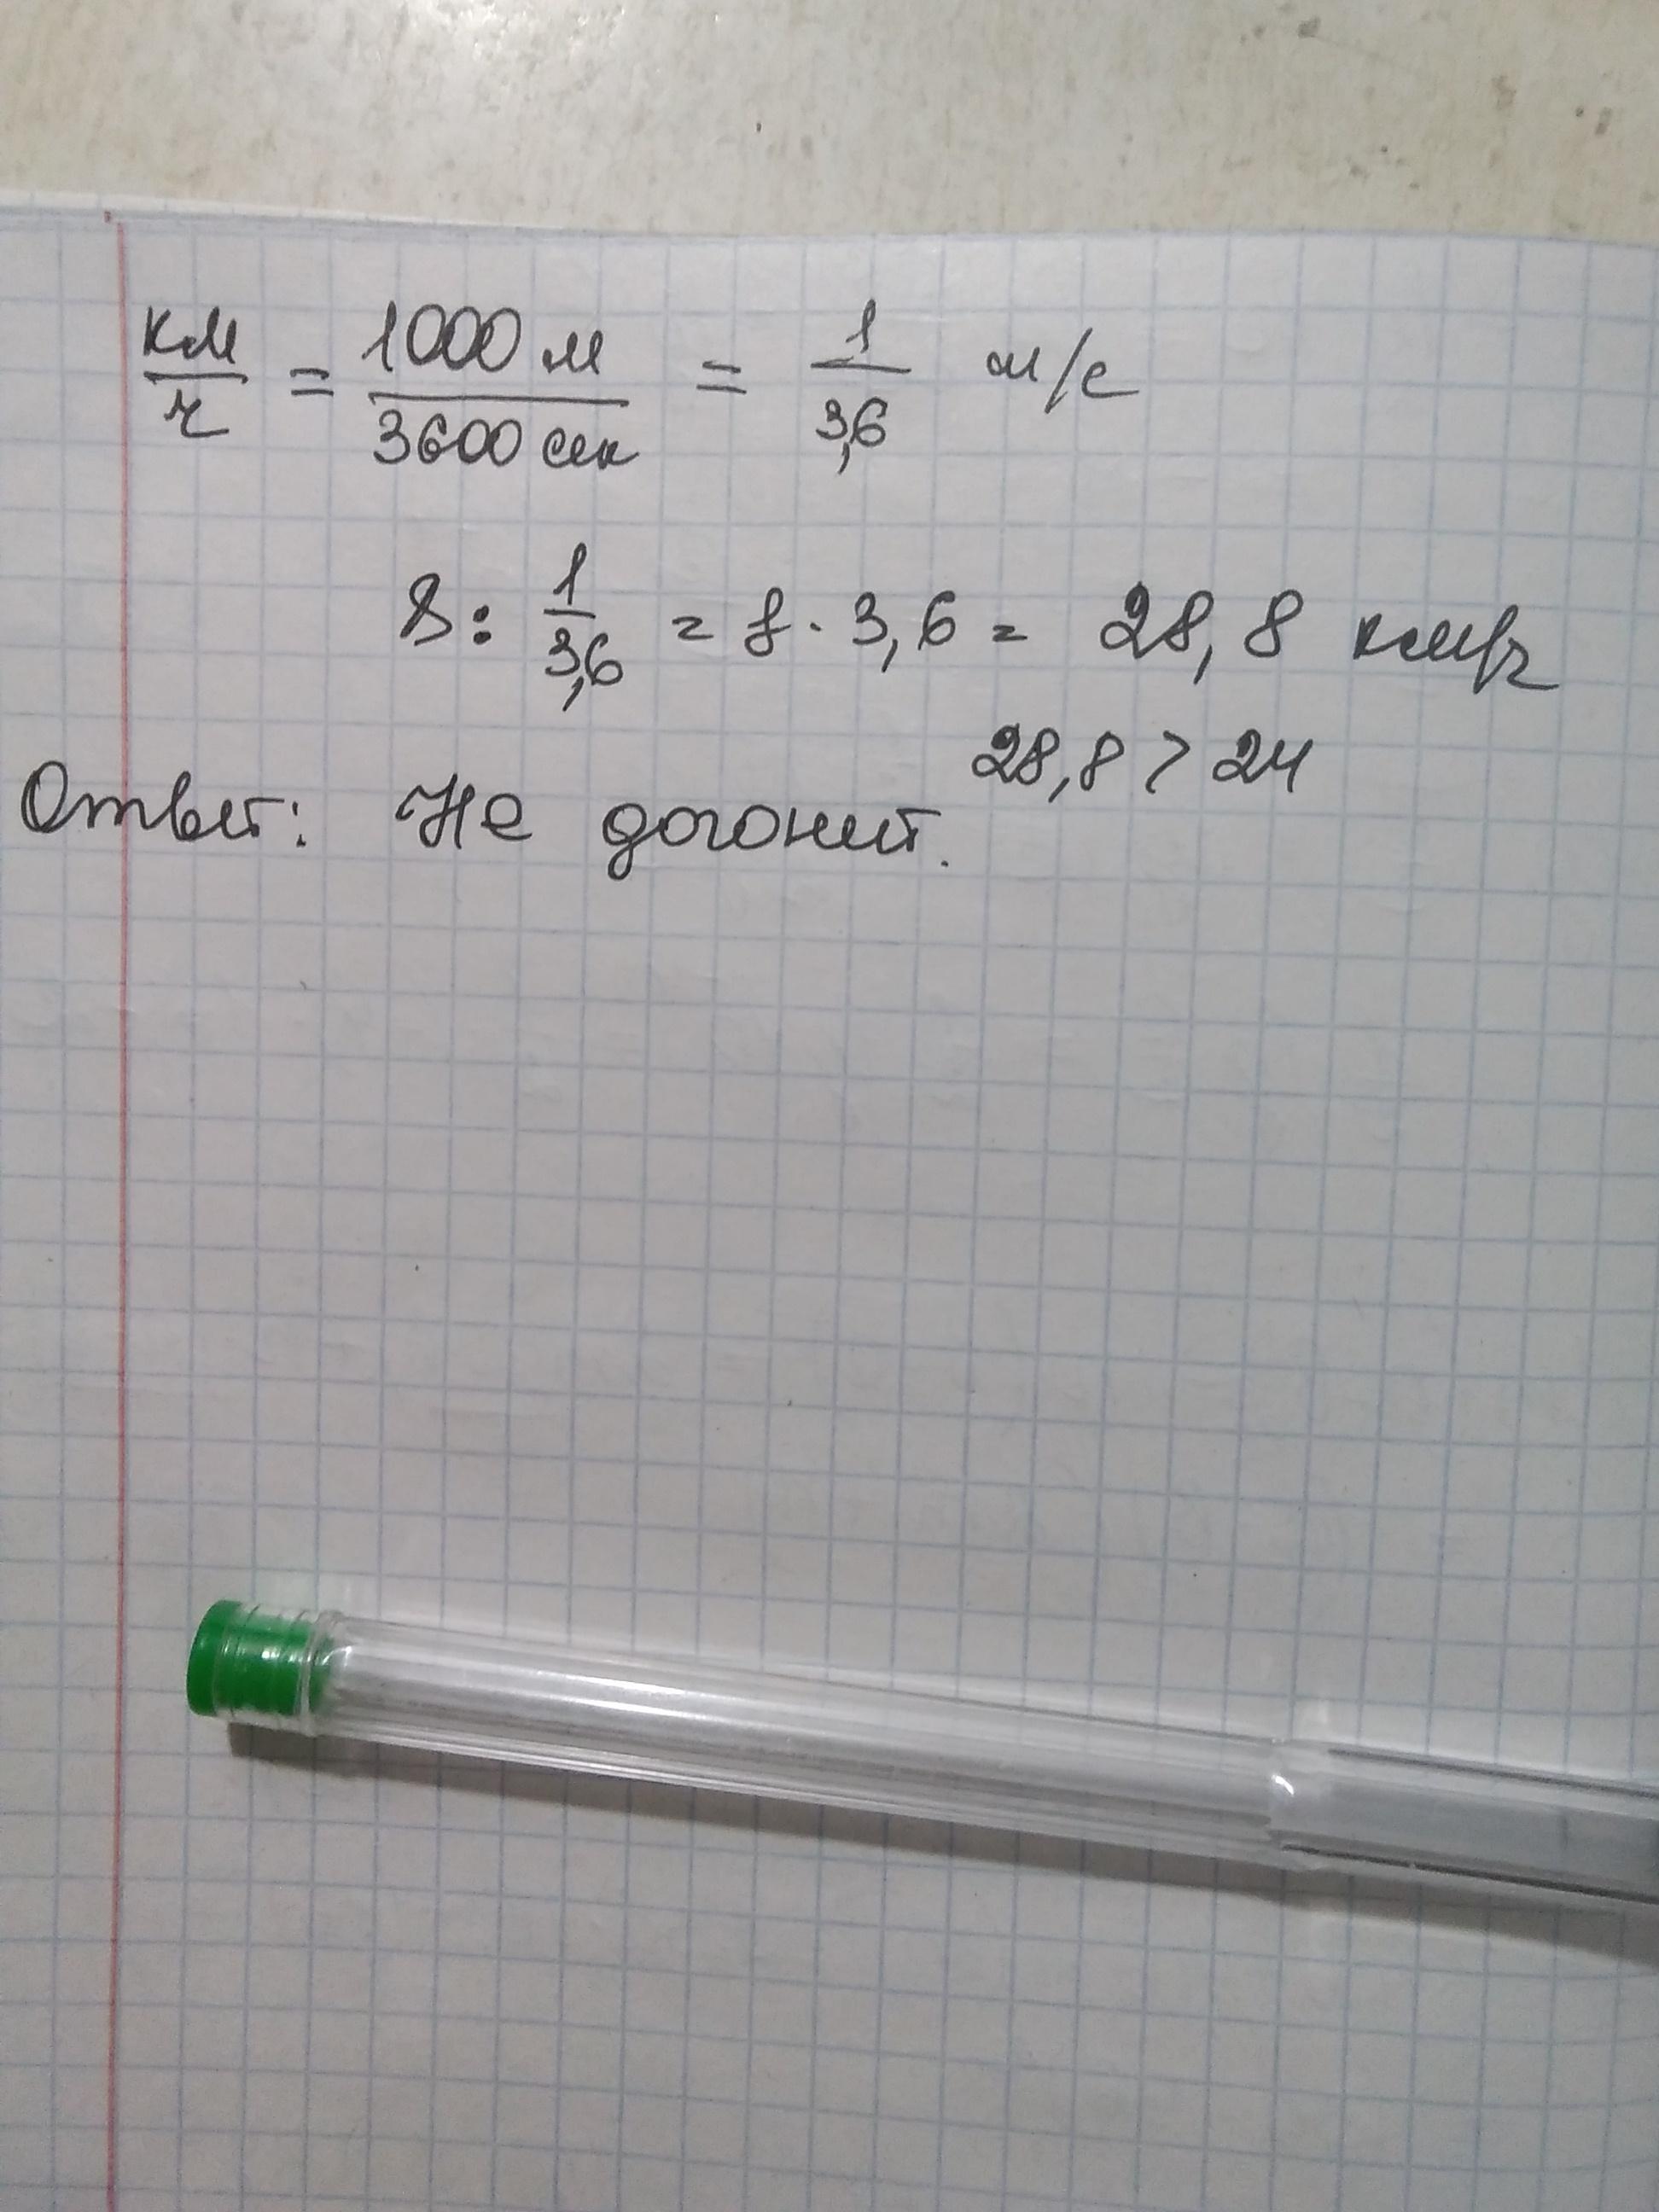 км/ч = 1000 м/3600 сек = 1/3,6 м/с
8 : 1/3,6 = 8 · 3,6 = 28,8 км/ч
28,8 > 24
Ответ: Не догонит.